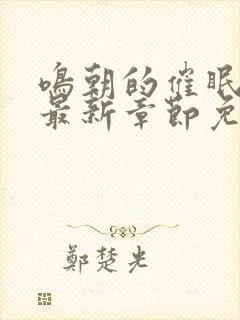 鳴朝的催眠
最新章節免
鄭楚光